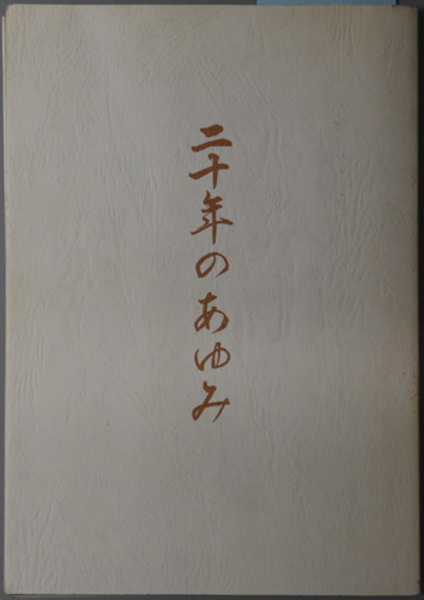 二十年のあゆみ